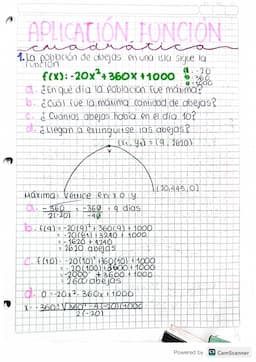 APLICACIÓN FUNCIÓN
cuadrática
1. La población de abejas en una isla sigue la
función
f(x): -20x²+360x+1000
a: -20
b: 360
a. ¿En qué día la población fue máxima?
b. ¿Cuál fue la máxima cantidad de abejas?
c. ¿Cuántas abejas había en el día 10?
d. ¿Llegan a extinguirse las abejas?
(xv, yv) = (9, 2620)
(20.445,0)
Máxima: Vértice en x o y
a. -360 = -360 = 9 días
2(-20) -40
b. f(9) = -20(9)² + 360(9) + 1000
= -20(81) + 3240 + 1000
= -1620 + 4240
= 2620 abejas
c. f(10) = -20(10)² + 360(10) + 1000
= -20(100) + 3600 + 1000
= -2000 + 3600 + 1000
= 2600 abejas
d. 0 = -20x² - 360x + 1000
x = -360 ± √360² - 4(-20)(1000)
2(-20)
Powered by CS CamScanner